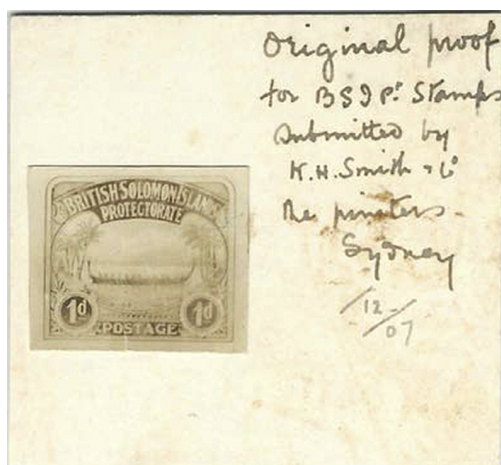 Original proof
for BSIPt Stamps
Submitted by
W.H. Smith & Co
the printers
Sydney
/12/07
BRITISH SOLOMON ISLAN
PROTECTORATE
1d
POSTAGE
1d